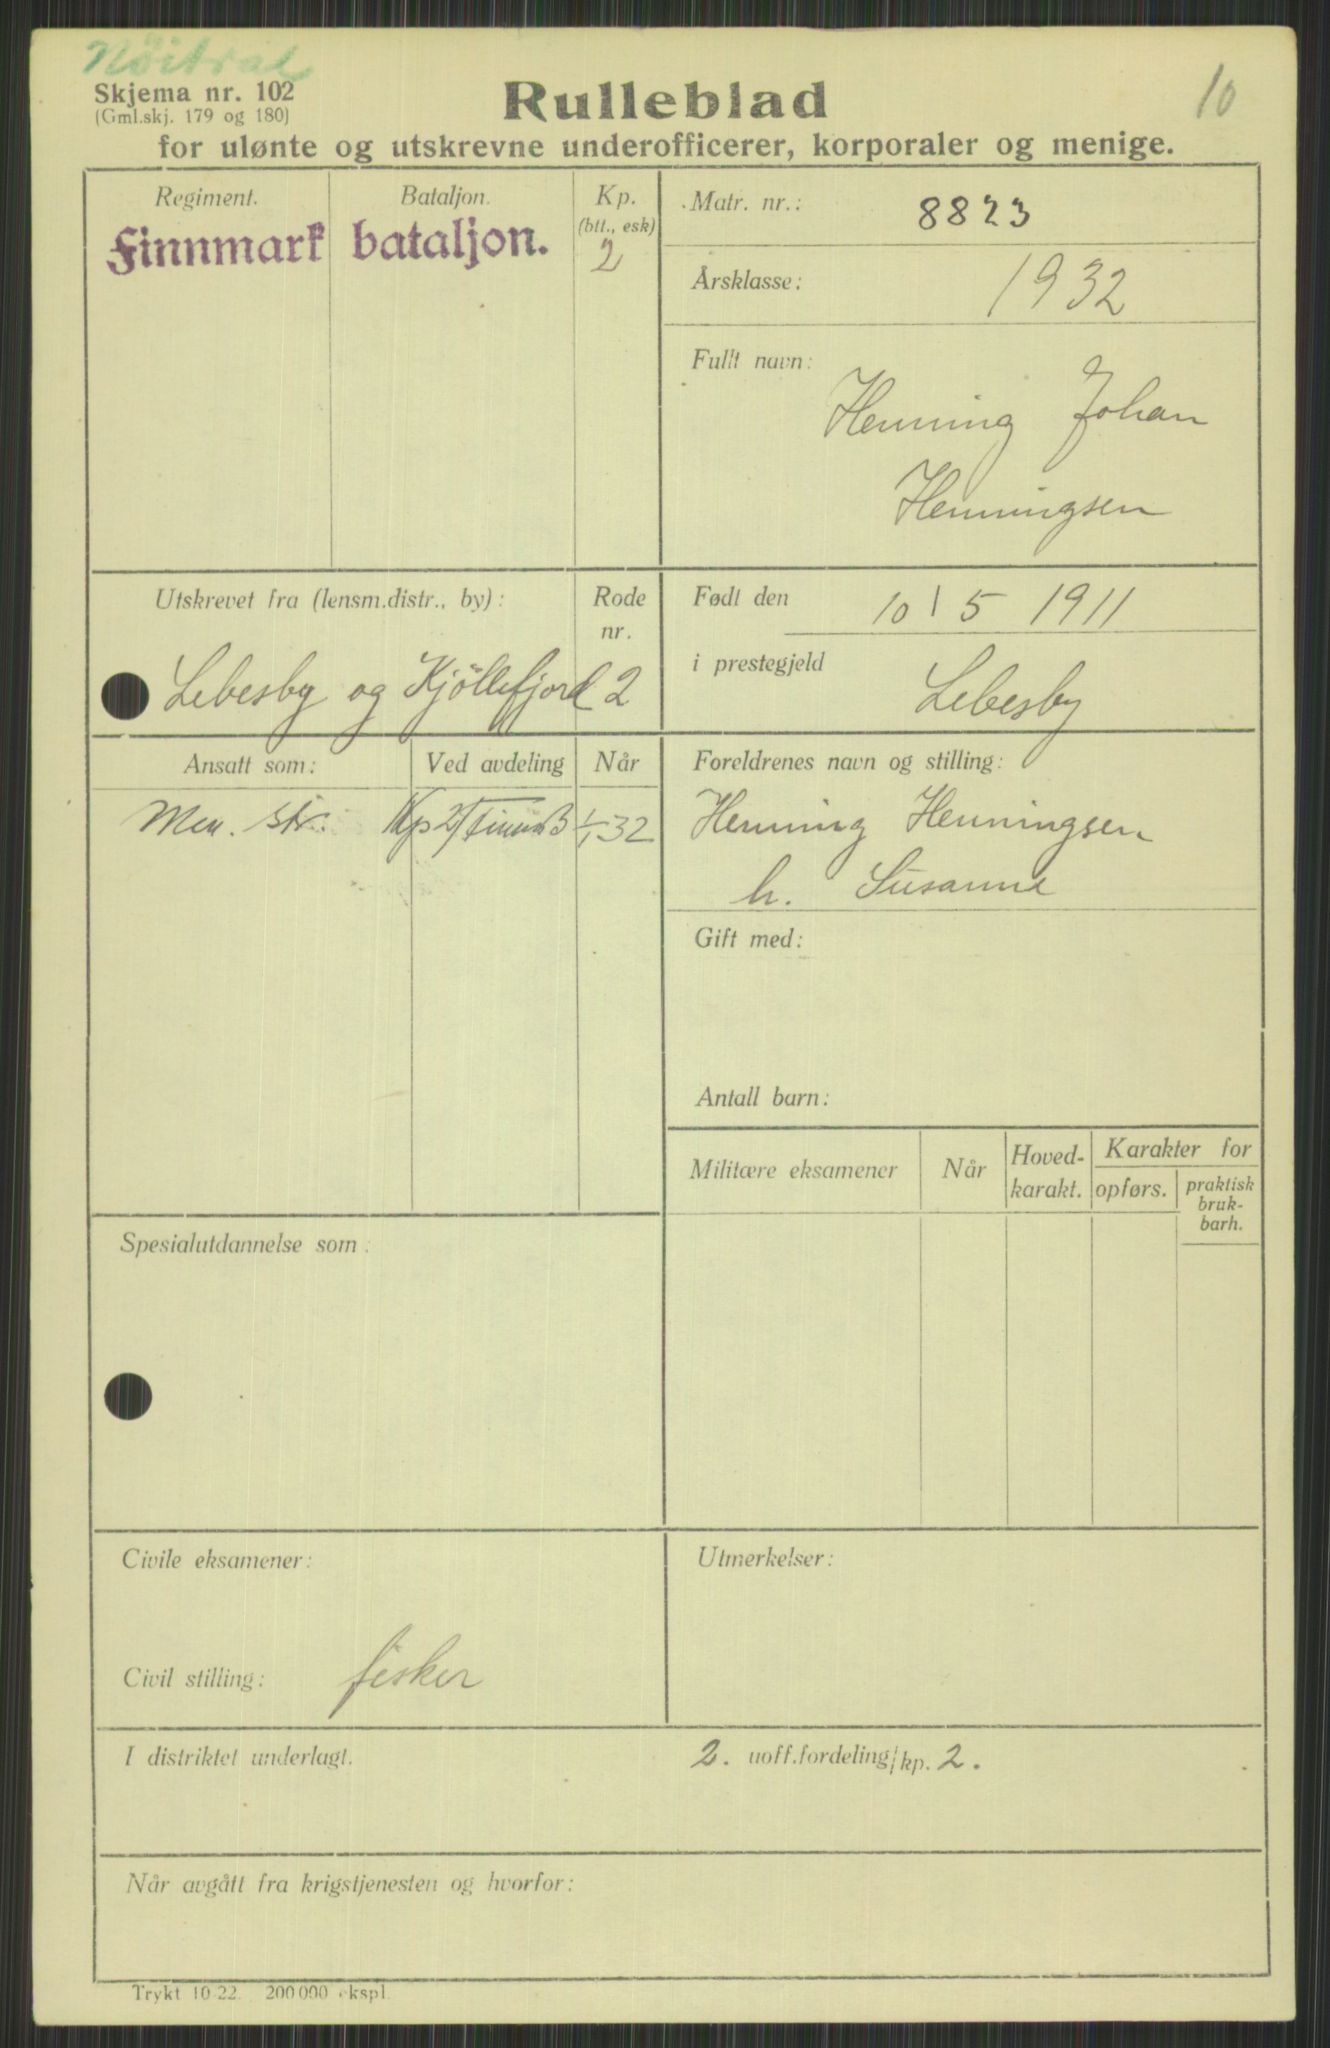 Nöitral
Skjema nr. 102
(Gml.skj. 179 og 180)
10
Rulleblad
for ulønte og utskrevne underofficerer, korporaler og menige.
Regiment. Bataljon. Kp. (btt., esk)
Finnmark bataljon. 2
Matr. nr.: 8823
Årsklasse: 1932
Fullt navn:
Henning Johan
Henningsen
Utskrevet fra (lensm.distr., by): Rode nr.
Lebesby og Kjöllefjord 2
Født den 10/5 1911
i prestegjeld Lebesby
Ansatt som: Ved avdeling Når
Men. str. Kp 2/FinnB 1/1 32
Foreldrenes navn og stilling:
Henning Henningsen
h. Susanna
Gift med:
Antall barn:
Militære eksamener Når Hoved-karakt. Karakter for
opførs. praktisk bruk-barh.
Spesialutdannelse som:
Civile eksamener:
Civil stilling: fisker
Utmerkelser:
I distriktet underlagt. 2. uoff.fordeling/kp. 2.
Når avgått fra krigstjenesten og hvorfor:
Trykt 10-22. 200 000 ekspl.